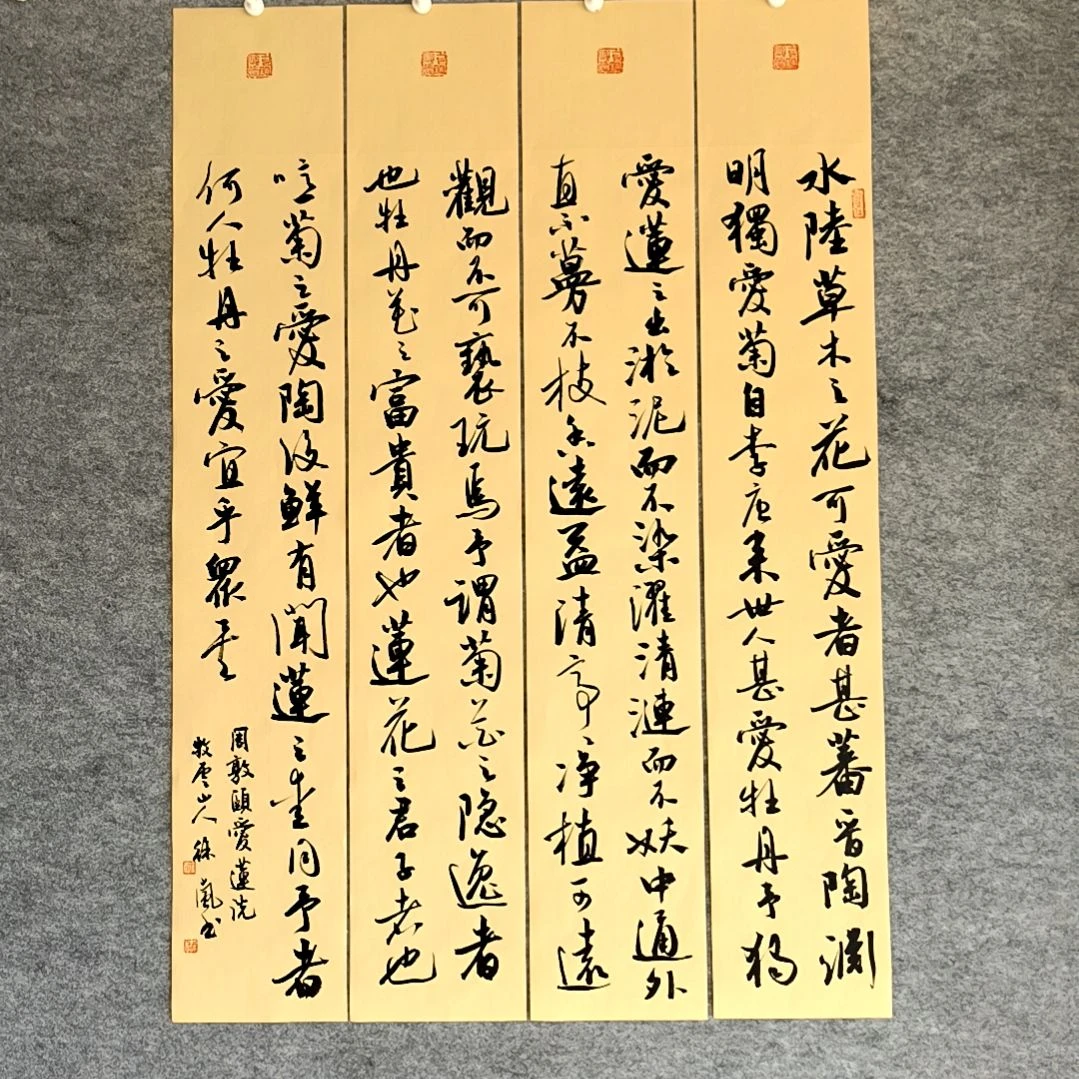 水陸草木之花可愛者甚蕃晋陶淵
明獨愛菊自李唐来世人甚愛牡丹予獨
愛蓮之出淤泥而不染濯清漣而不妖中通外
直不蔓不枝香遠益清亭亭净植可遠
觀而不可褻玩焉予謂菊花之隐逸者
也牡丹花之富貴者也蓮花之君子者也
噫菊之愛陶後鮮有聞蓮之愛同予者
何人牡丹之愛宜乎眾矣
周敦頤愛蓮说
牧雲山人徐嵐书